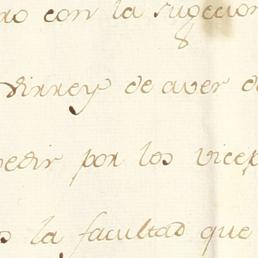 no con la sugecion
Virrey de aver d
pedir por los vicep
s la facultad que